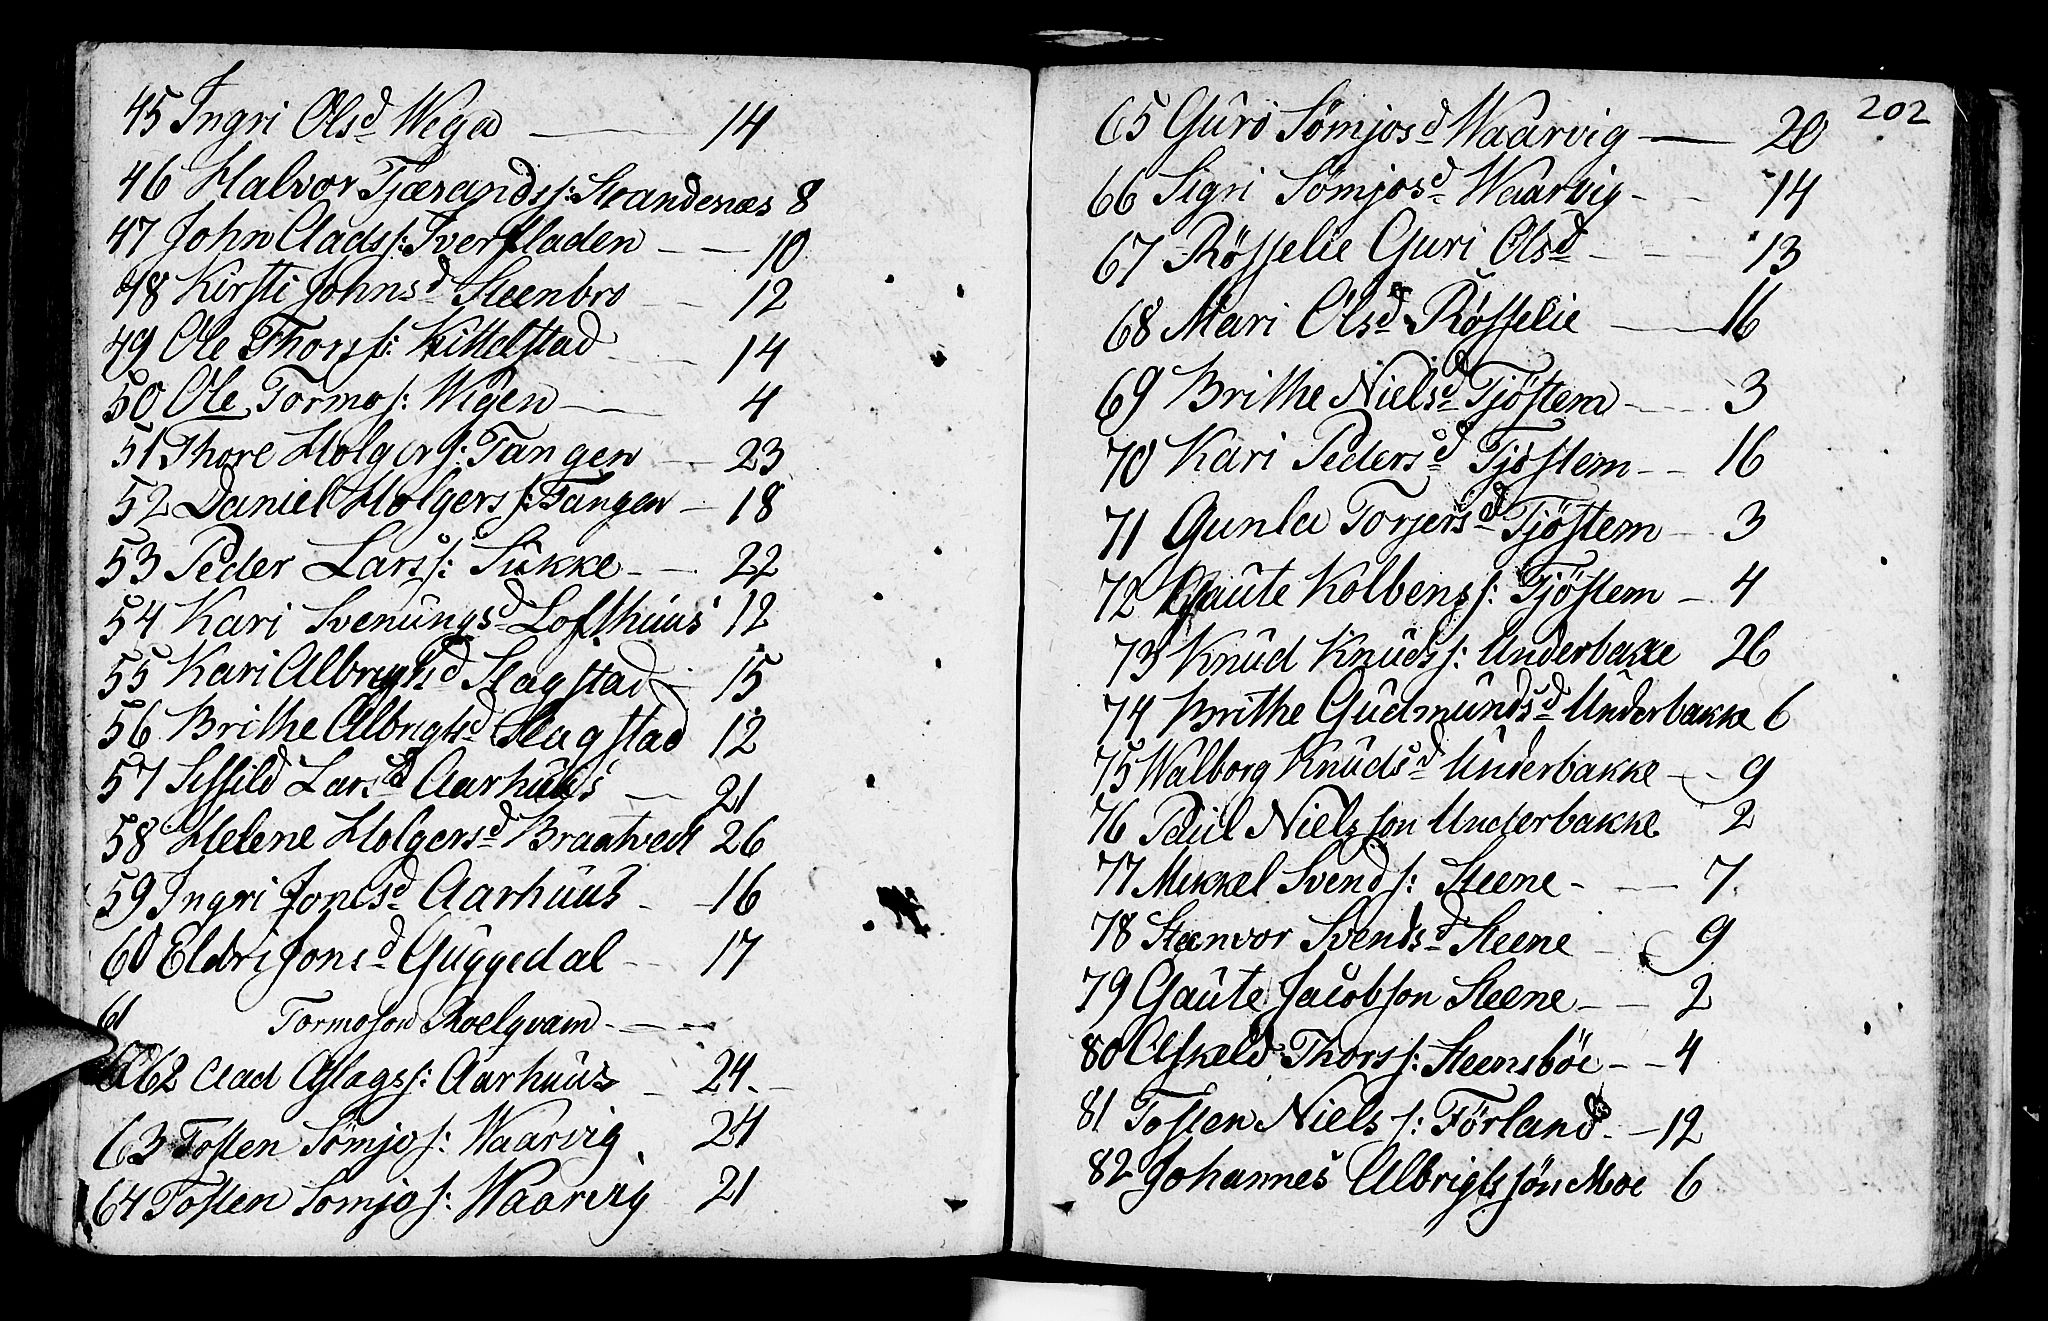 45 Ingri Olsd Wega — 14
46 Halvor Tjærandss: Strandenæs 8
47 John Aadss: Tverfladen — — 10
48 Kirsti Johnsd Steenbro — 12
49 Ole Thorss: Kittelstad — 14
50 Ole Tormos: Wigen — 4
51 Thore Holgers: Tangen — 23
52 Daniel Holgerss: Tangen — 18
53 Peder Larss: Sukke — 22
54 Kari Svenungsd Lofthuus 12
55 Kari Albrigtsd Slagstad — 15
56 Brithe Albrigtsd Slagstad 12
57 Sissild Larsd Aarhuus — 21
58 Helene Holgersd Braatvedt 26
59 Ingri Jonsd Aarhuus — 16
60 Eldri Jonsd Guggedal — 17
61 Tormoson Roelqvam — —
62 Aad Aslagss: Aarhuus — 24 —
63 Tosten Sømjos: Waarvig 24
64 Tosten Somjos: Waarvig 21
202
65 Guro Sømjosd Waarvig — 20
66 Sigri Sømjosd Waarvig — 14
67 Røsselie Guri Olsd — — 13
68 Mari Olsd Røsselie — 16
69 Brithe Nielsd Tjøstem — 3
70 Kari Pedersd Tjøstem — 16
71 Gunla Torjersd Tjøstem — 3
72 Gaute Kolbenss: Tjøstem — 4
73 Knud Knudss: Underbakke 26
74 Brithe Gudmundsd Underbakke 6
75 Walborg Knudsd Underbakke — 9
76 Paul Nielsson Underbakke 2
77 Mikkel Svends: Steene — — 7
78 Steenvor Svendsd Steene — 9
79 Gaute Jacobson Steene — — 2
80 Askeld Thorss: Steensbøe — — 4
81 Tosten Nielss: Førland — 12
82 Johannes Albrigtssøn Moe 6